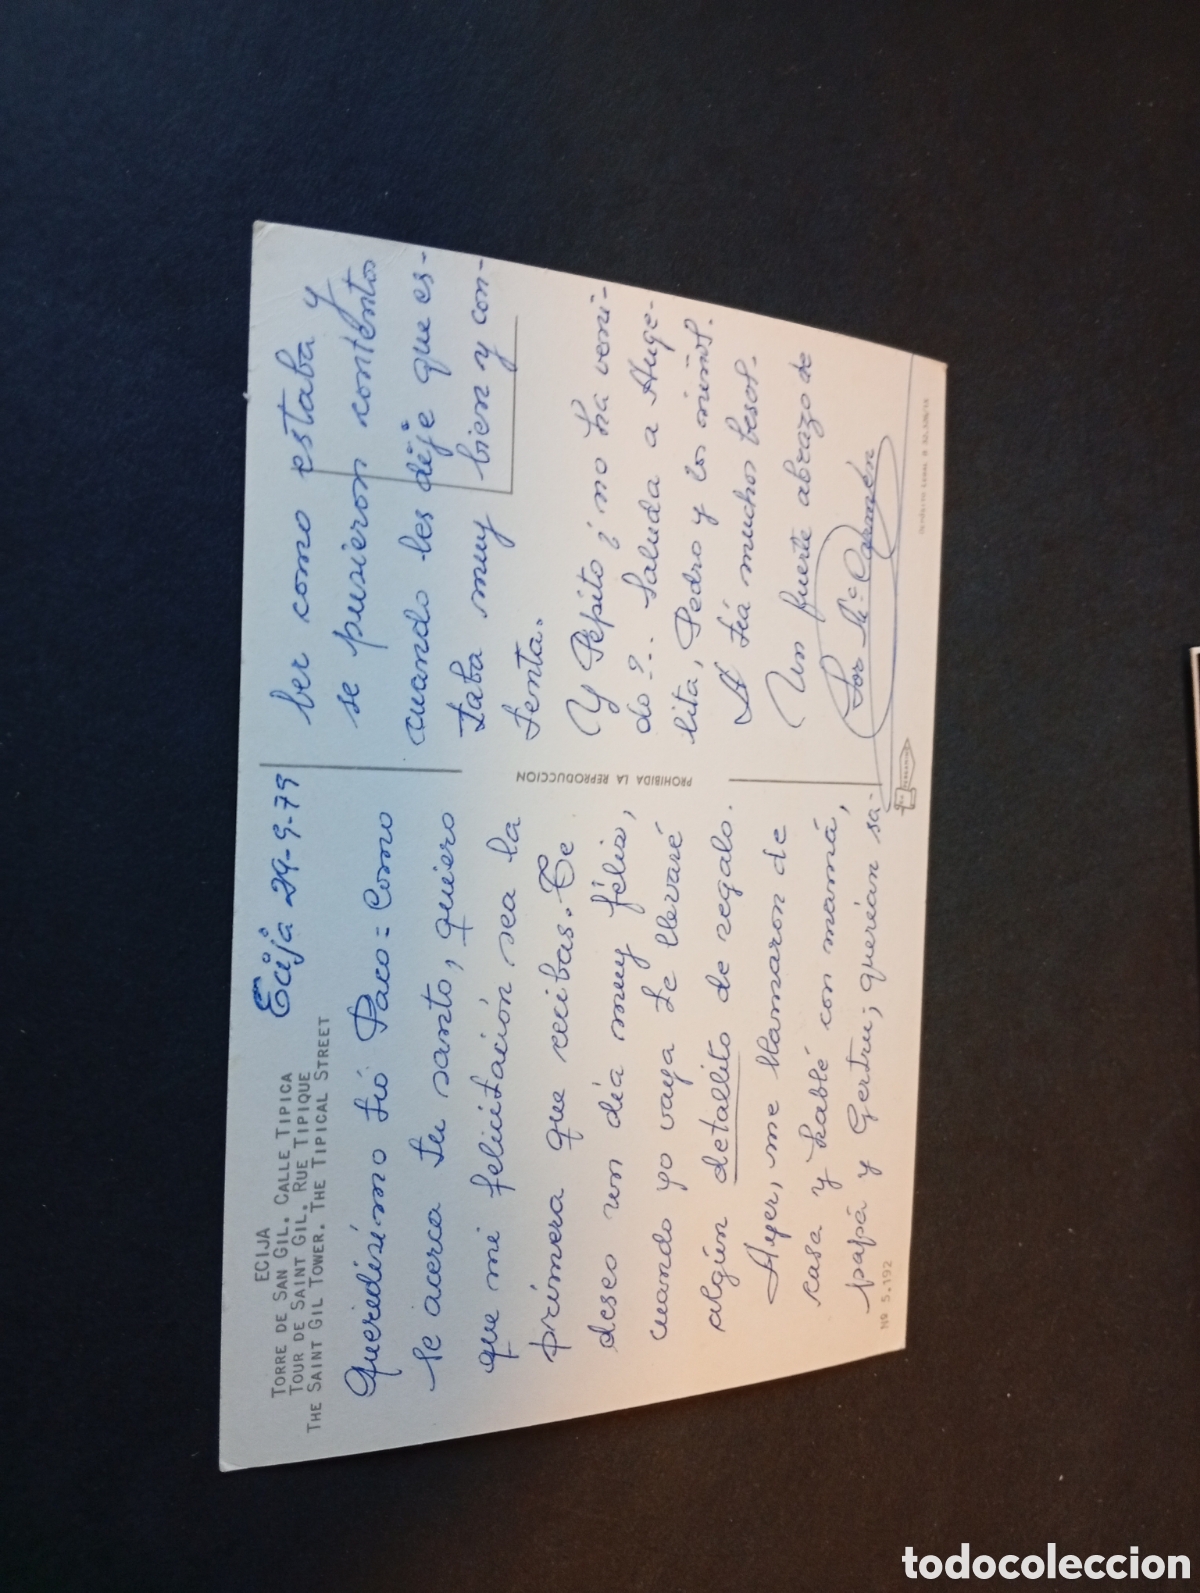 ECIJA
TORRE DE SAN GIL. CALLE TIPICA
TOUR DE SAINT GIL. RUE TIPIQUE
THE SAINT GIL TOWER. THE TIPICAL STREET
Ecija 29-9-79
Queridísimo tió Paco = Como
se acerca tu santo, quiero
que mi felicitación sea la
primera que recibas. Te
deseo un día muy féliz,
cuando yo vaya te llevaré
algún detallito de regalo.
Ayer, me llamaron de
casa y hablé con mamá,
papá y Gertru; querían sa-
Nº 5.192
PROHIBIDA LA REPRODUCCION
ber como estaba y
se pusieron contentos
cuando les dije que es-
taba muy bien y con-
tenta.
Y Pépito ¿no ha veni-
do?.. Saluda a Ange-
lita, Pedro y los niños.
A tiá muchos besos.
Un fuerte abrazo de
Sor Mª Carmén
todocoleccion